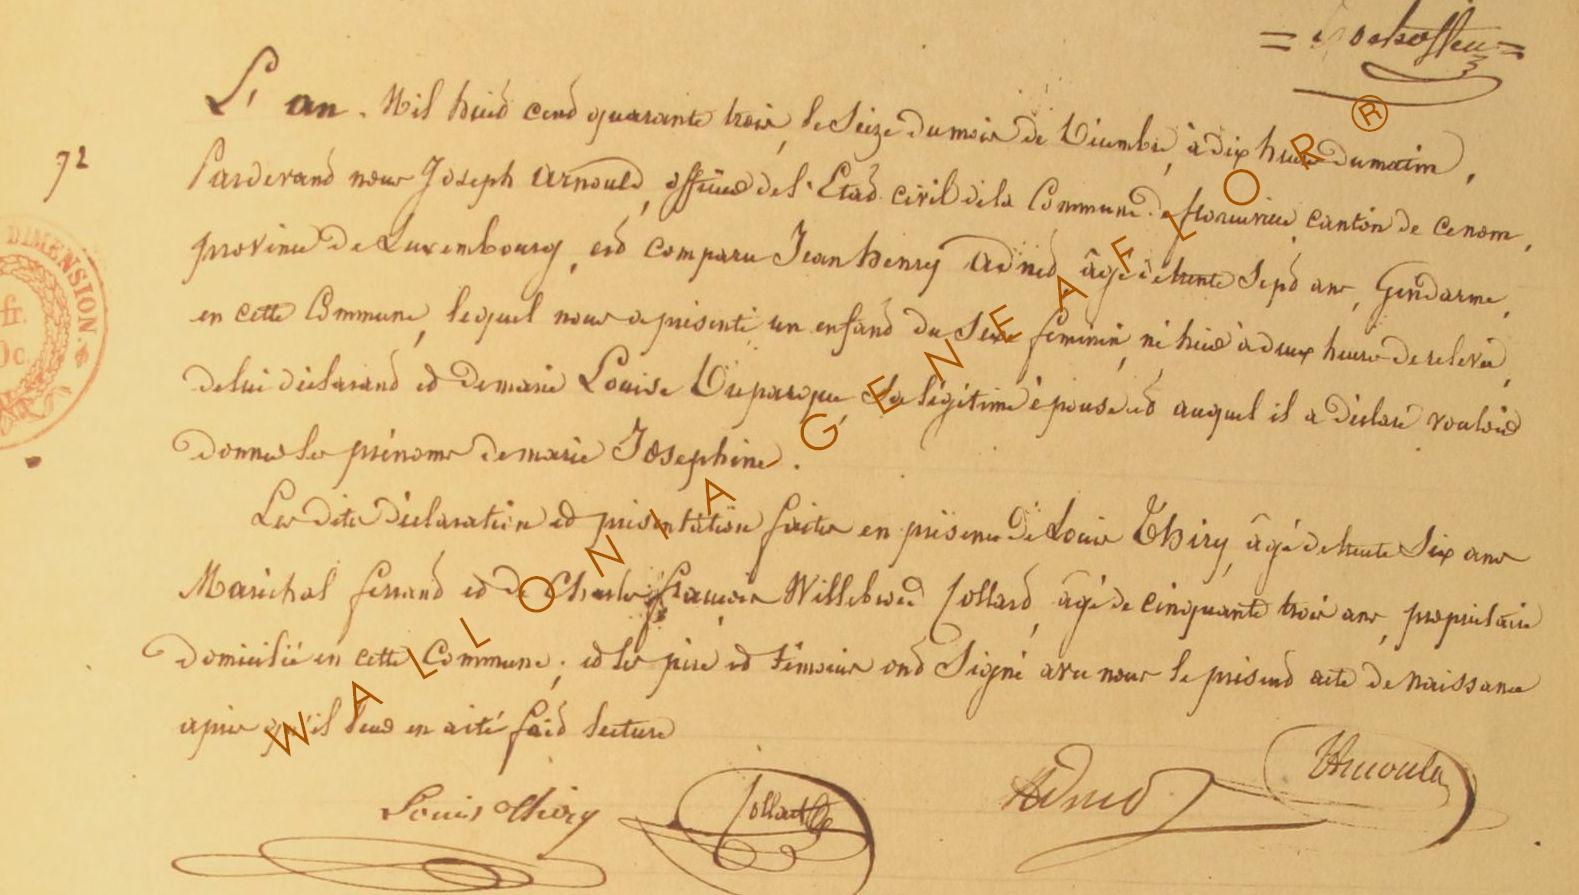 L'an Mil huit cent quarante trois, le seize du mois de Décembre, à dix heures du matin,
72
Pardevant nous Joseph Arnould, officier de l'Etat civil de la Commune de florenville, canton de ce nom,
province de Luxembourg, est comparu Jean henry Adnet, âgé de trente sept ans, Gendarme,
en cette Commune, lequel nous a présenté un enfant du sexe féminin, né hier à deux heures de relevée,
de lui déclarant et de marie Louise Duparque, sa légitime épouse et auquel il a déclaré vouloir
donner les prénoms de marie Joséphine.
Les dites déclaration et présentation faites en présence de Louis Thiry, âgé de trente six ans
Maréchal ferrant et de Charles françois Willebrord Collard, âgé de cinquante trois ans, propriétaire
domicilié en cette Commune; et les père et témoins ont signé avec nous le présent acte de naissance
après qu'il leur en a été fait lecture
Louis Thiry Collard Adnet
DIMENSION.
fr.
WALLONIA GENEAFLOR ®